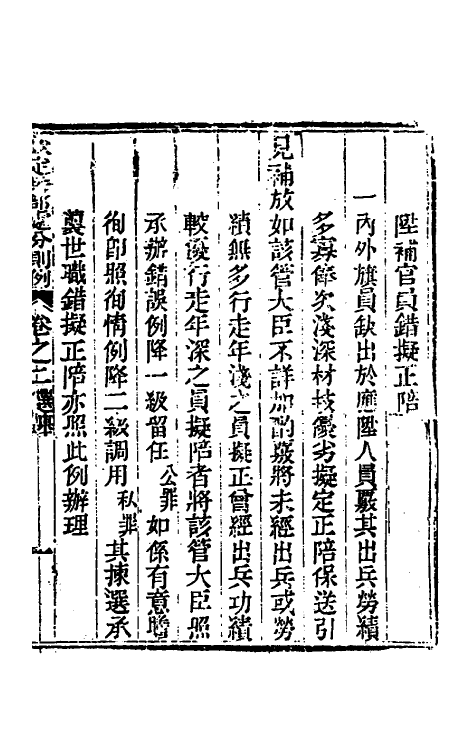 陞補官員錯擬正陪
一內外旗員缺出於應陞人員覈其出兵勞績
多寡俸次淺深材技優劣擬定正陪保送引
見補放如該管大臣不詳加酌覈將未經出兵或勞
績無多行走年淺之員擬正曾經出兵功績
較優行走年深之員擬陪者將該管大臣照
承辦錯誤例降一級留任公罪如係有意瞻
徇卽照徇情例降二級調用私罪其揀選承
襲世職錯擬正陪亦照此例辦理
欽定 部處分則例 卷之二 選舉 一